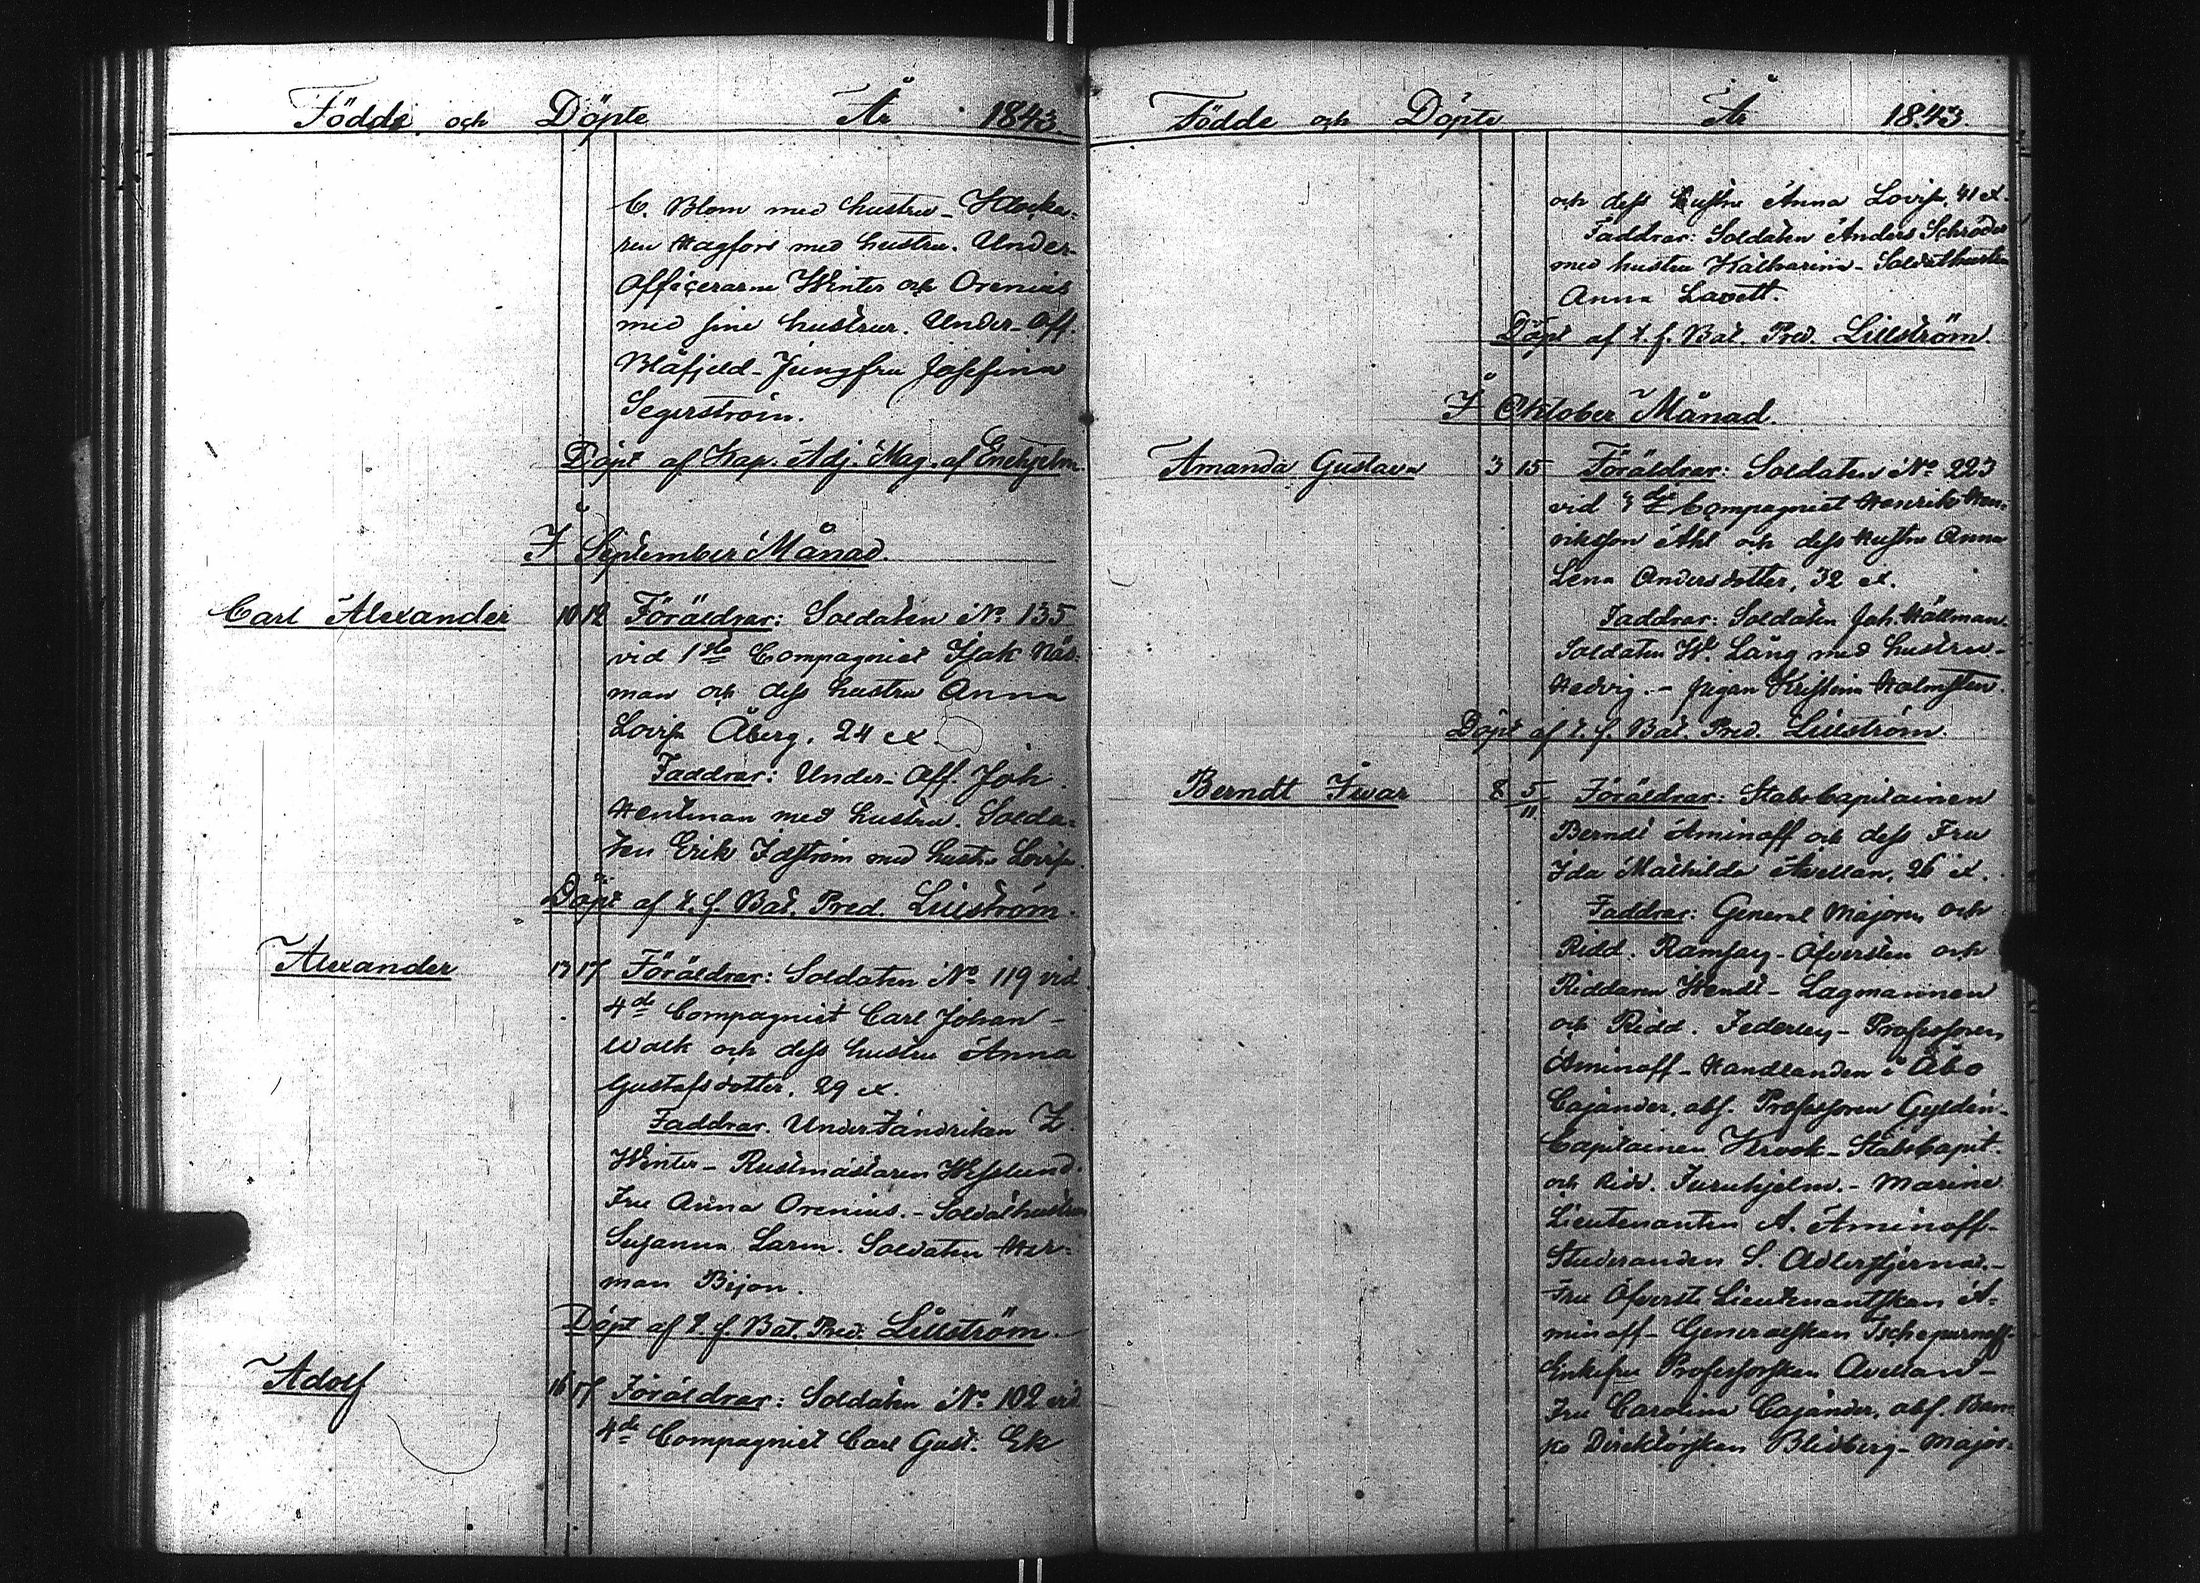 Födde och Döpte År 1843.
C. Blom med hustru - Klocka-
ren Hagfors med hustru. Under-
Officerarne Winter och Orenius
med sine hustrur. Under-Off.
Blåfjeld - Jungfru Josefina
Segerström.
Döpt af Kap. Adj. Mag. af Enehjelm.
I September Månad.
Carl Alexander 10 12 Föräldrar: Soldaten No. 135
vid 1sta Compagniet Isak Näs-
man och dess hustru Anna
Lovisa Åberg, 24 
Faddrar: Under-Off. Joh.
Hentman med hustru. Solda-
ten Erik Idström med hustru Lovisa.
Döpt af t. f. Bat. Pred. Lillström.
Alexander 13 17 Föräldrar: Soldaten No. 119 vid
4de Compagniet Carl Johan
Walk och dess hustru Anna
Gustafsdotter, 29 
Faddrar. Under-Fändriken Z.
Winter - Rustmästaren Wesslund.
Fru Anna Orenius. - Soldathustrun
Susanna Larm. Soldaten Her-
man Bijon.
Döpt af t. f. Bat. Pred. Lillström.
Adolf 16 17 Föräldrar: Soldaten No. 102 vid
4de Compagniet Carl Gust. Ek
Födde och Döpte År 1843.
och dess hustru Anna Lovisa, 41
Faddrar: Soldaten Anders Schröder
med hustru Katharina - Soldathustru
Anna Lavett.
Döpt af t. f. Bat. Pred. Lillström.
I Oktober Månad.
Amanda Gustava 3 15 Föräldrar: Soldaten No. 223
vid 3dje Compagniet Henrik Hen-
riksson Ahl och dess hustru Anna
Lena Andersdotter, 32 
Faddrar: Soldaten Joh. Hällman
Soldaten W. Lång med hustru
Hedvig. - pigan Kristina Holmsten.
Döpt af t. f. Bat. Pred. Lillström.
Berndt Iwar 8 5/11 Föräldrar: Stabs Capitainen
Berndt Aminoff och dess Fru
Ida Mathilda Avellan, 26 
Faddrar: General Majoren och
Ridd. Ramsay - Öfversten och
Riddaren Wendt - Lagmannen
och Ridd. Federley - Professoren
Aminoff - Handlanden i Åbo
Cajander, abs. Professoren Gyldén -
Capitainen Krook - Stabs Capit.
och Ridd. Furuhjelm. - Marine
Lieutenanten A. Aminoff -
Studeranden S. Adlerstjerna. -
Fru Öfverst Lieutenantskan A-
minoff - Generalskan Tschepurnoff -
Enkefru Professorskan Avellan -
Fru Carolina Cajander, abs. Ban-
ko Direktörskan Blidberg - Major-